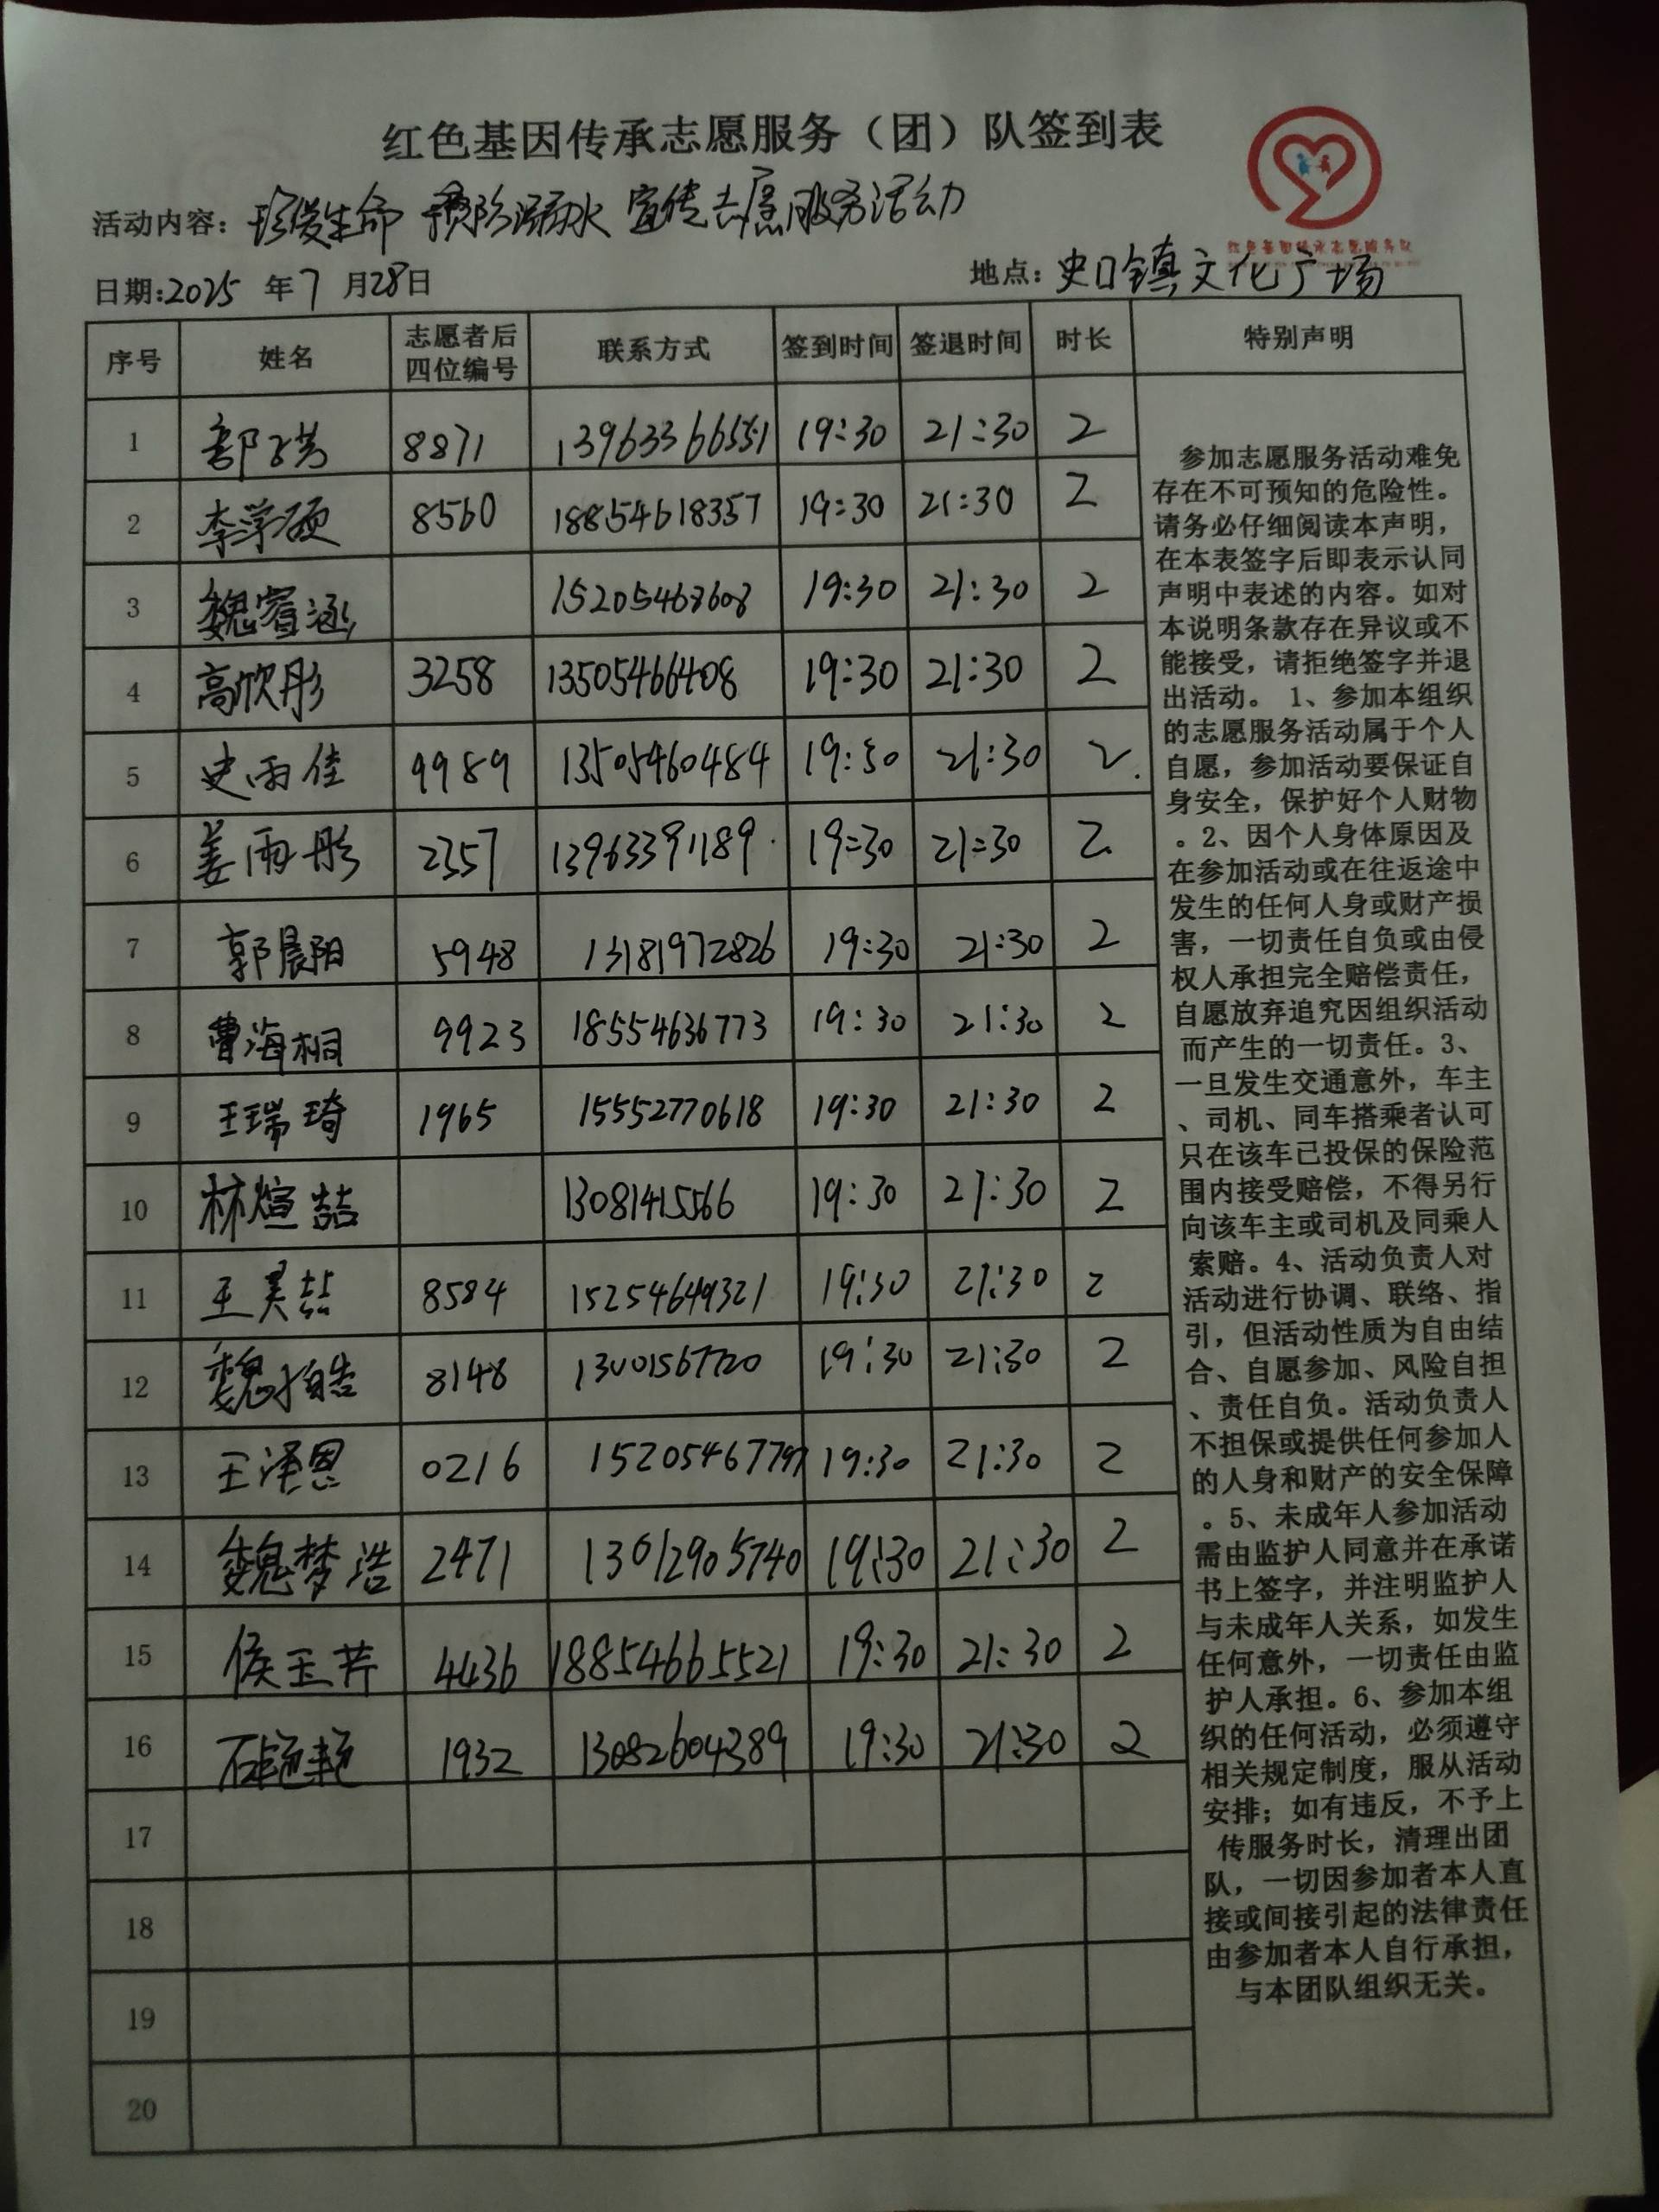 红色基因传承志愿服务（团）队签到表
活动内容：珍爱生命 预防溺水 宣传志愿服务活动
日期：2025 年 7 月 28 日 地点：史口镇文化广场
序号 姓名 志愿者后四位编号 联系方式 签到时间 签退时间 时长 特别声明
1 8871 13963366551 19:30 21:30 2
2 李学硕 8560 18854618357 19:30 21:30 2
3 魏睿涵 15205468608 19:30 21:30 2
4 高欣彤 3258 13505466408 19:30 21:30 2
5 史雨佳 9989 13505460484 19:30 21:30 2
6 姜雨彤 2357 13963391189 19:30 21:30 2
7 郭晨阳 5948 13181972826 19:30 21:30 2
8 曹海桐 9923 18554636773 19:30 21:30 2
9 王瑞琦 1965 15552770618 19:30 21:30 2
10 林煊喆 13081415566 19:30 21:30 2
11 王昊喆 8584 15254649321 19:30 21:30 2
12 8148 13001567720 19:30 21:30 2
13 王泽恩 0216 19:30 21:30 2
14 魏梦浩 2471 13612905740 19:30 21:30 2
15 侯玉芹 4436 18854665521 19:30 21:30 2
16 1932 13082604389 19:30 21:30 2
17
18
19
20
参加志愿服务活动难免
存在不可预知的危险性。
请务必仔细阅读本声明，
在本表签字后即表示认同
声明中表述的内容。如对
本说明条款存在异议或不
能接受，请拒绝签字并退
出活动。 1、参加本组织
的志愿服务活动属于个人
自愿，参加活动要保证自
身安全，保护好个人财物
。2、因个人身体原因及
在参加活动或在往返途中
发生的任何人身或财产损
害，一切责任自负或由侵
权人承担完全赔偿责任，
自愿放弃追究因组织活动
而产生的一切责任。3、
一旦发生交通意外，车主
、司机、同车搭乘者认可
只在该车已投保的保险范
围内接受赔偿，不得另行
向该车主或司机及同乘人
索赔。4、活动负责人对
活动进行协调、联络、指
引，但活动性质为自由结
合、自愿参加、风险自担
、责任自负。活动负责人
不担保或提供任何参加人
的人身和财产的安全保障
。5、未成年人参加活动
需由监护人同意并在承诺
书上签字，并注明监护人
与未成年人关系，如发生
任何意外，一切责任由监
护人承担。6、参加本组
织的任何活动，必须遵守
相关规定制度，服从活动
安排；如有违反，不予上
传服务时长，清理出团
队，一切因参加者本人直
接或间接引起的法律责任
由参加者本人自行承担，
与本团队组织无关。